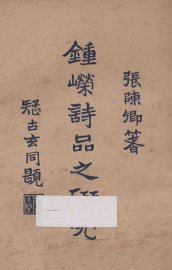 張陳卿箸
鍾嶸詩品之研究
疑古玄同題